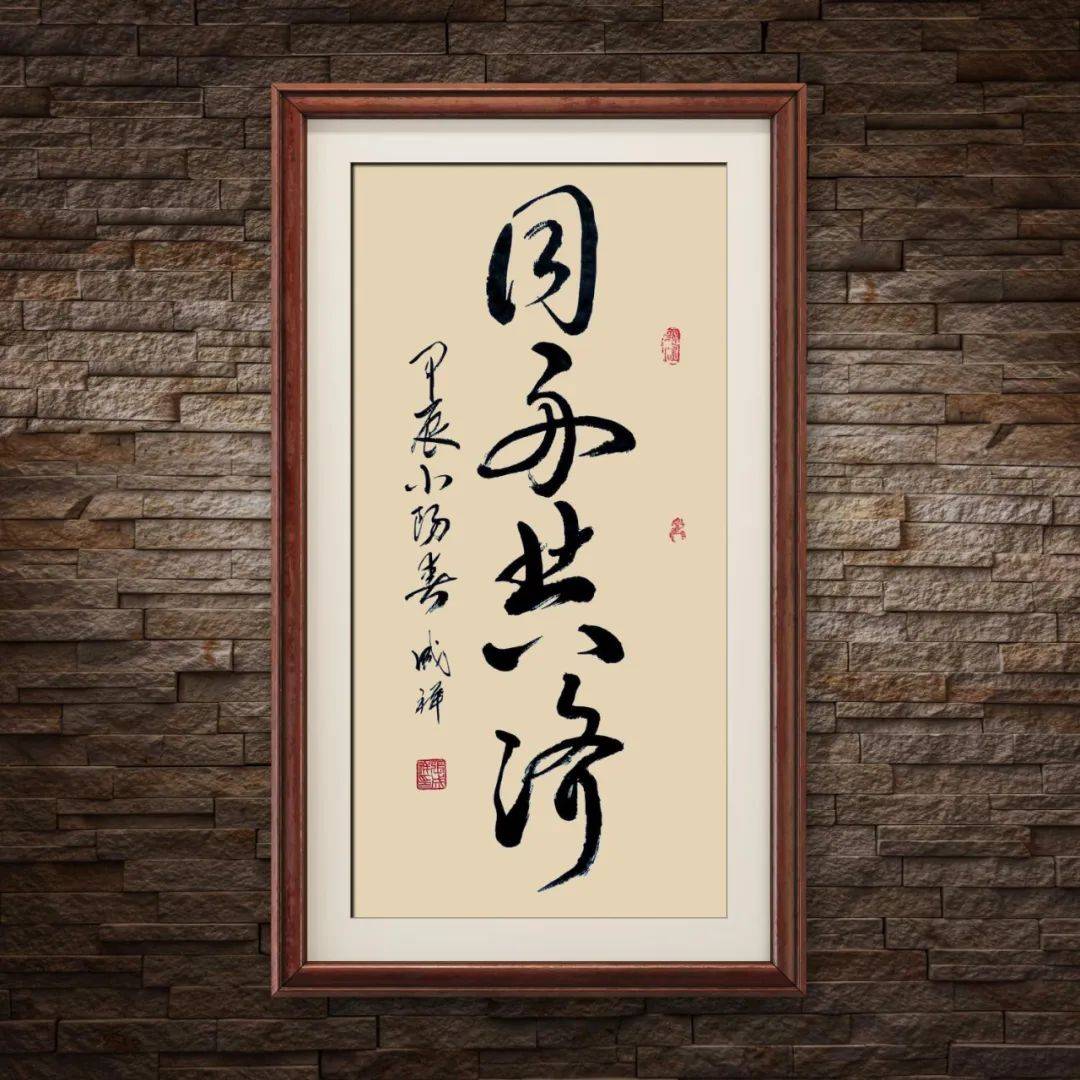 同舟共济
甲辰小阳春 成祥